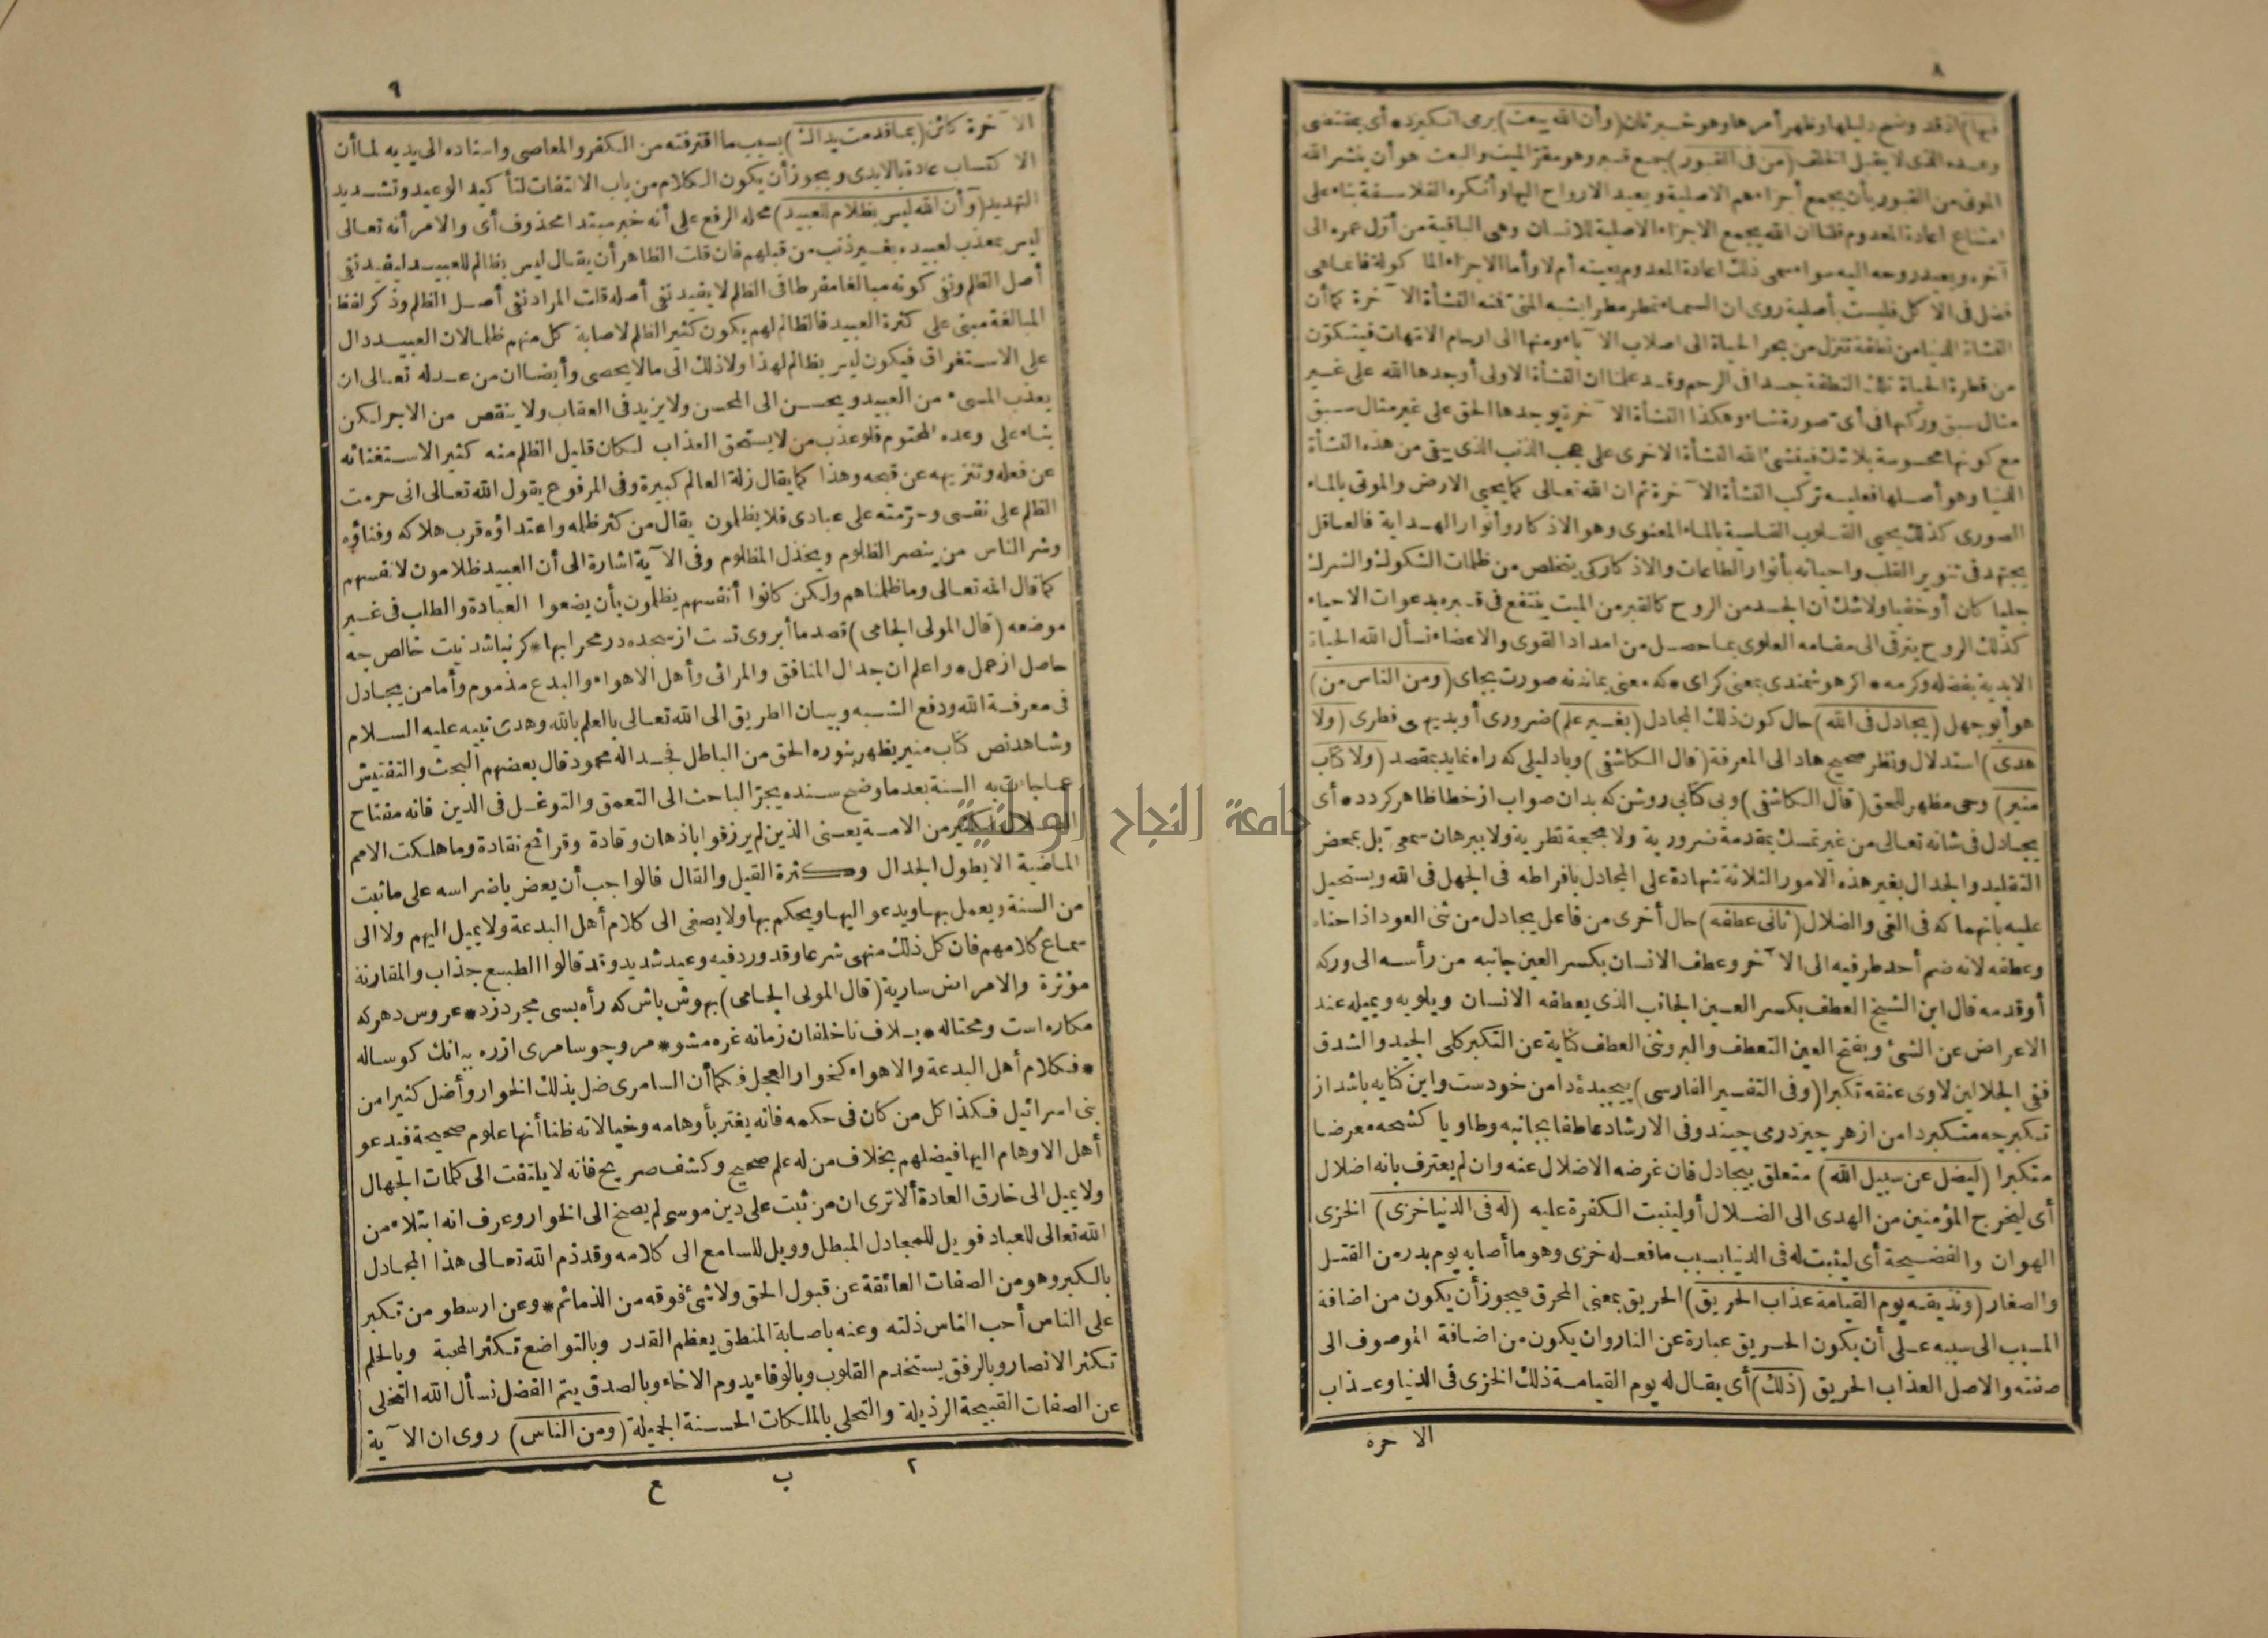 ٨
فيها) اذ قد وضح دليلها وظهر أمرها وهو خبر ثان (وأن الله يبعث) برمى انكيزد• أى بمقتضى
وعده الذى لا يقبل الخلف (من فى القبور) جمع قبر وهو مقر الميت والبعث هو أن ينشر الله
الموتى من القبور بأن يجمع أجزاءهم الاصلية ويعيد الارواح اليها وأنكره الفلاسفة بناء على
امتناع اعادة المعدوم قلنا ان الله يجمع الاجزاء الاصلية للانسان وهى الباقية من أول عمره الى
آخره ويعيد روحه اليه سواء سمى ذلك اعادة المعدوم بعينه أم لا وأما الاجزاء الما كولة فانما هى
فضل فى الا كل فليست بأصلية روى ان السماء تمطر مطرا يشبه المنى فمنه النشأة الا خرة كما أن
النشأة الدنيا من نطفة تنزل من بحر الحياة الى اصلاب الا باء ومنها الى ارحام الامهات فيتكون
من قطرة الحياة تلك النطفة جسدا فى الرحم وقد علمنا ان النشأة الاولى أوجدها الله على غير
مثال سبق وركبها فى أى صورة شاء وهكذا النشأة الا خرة يوجدها الحق على غير مثال سبق
مع كونها محسوسة بلاشك فينشئ الله النشأة الاخرى على عجب الذنب الذى يبقى من هذه النشأة
الدنيا وهو أصلها فعليه تركب النشأة الا خرة ثم ان الله تعالى كما يحيي الارض والموتى بالماء
الصورى كذلك يحيي القلوب القاسية بالماء المعنوى وهو الاذكار وأنوار الهداية فالعاقل
يجتهد فى تنوير القلب واحيائه بأنوار الطاعات والاذكار كى يتخلص من ظلمات الشكوك والشرك
جليا كان أو خفيا ولاشك ان الجسد من الروح كالقبر من الميت ينتفع فى قبره بدعوات الاحياء
كذلك الروح يترقى الى مقامه العلوى بما حصل من امداد القوى والاعضاء نسأل الله الحياة
الابدية بفضله وكرمه• اكر هوشمندى بمعنى كراى• كه معنى بماند نه صورت بجاى (ومن الناس من)
هو أبو جهل (يجادل فى الله) حال كون ذلك المجادل (بغير علم) ضرورى أو بديهى فطرى (ولا
هدى) استدلال ونظر صحيح هاد الى المعرفة (قال الكاشفى) وبا دليلى كه راه نمايد بمقصد (ولا كتاب
منير) وحى مظهر للحق (قال الكاشفى) وبى كتابى روشن كه بدان صواب از خطا ظاهر كردد• أى
يجادل فى شانه تعالى من غير تمسك بمقدمة ضرورية ولا بحجة نظرية ولا ببرهان سمعى بل بمحض
التقليد والجدال بغير هذه الامور الثلاثة شهادة على المجادل بافراطه فى الجهل فى الله ويستحيل
عليه بانهماكه فى الغى والضلال (ثانى عطفه) حال أخرى من فاعل يجادل من ثنى العود اذا حناه
وعطفه لانه ضم أحد طرفيه الى الا خر وعطف الانسان بكسر العين جانبه من رأسه الى وركه
أو قدمه قال ابن الشيخ العطف بكسر العين الجانب الذى يعطفه الانسان ويلويه ويميله عند
الاعراض عن الشئ وبفتح العين التعطف والبر وثنى العطف كناية عن التكبر كلى الجيد والشدق
ففى الجلالين لاوى عنقه تكبرا (وفى التفسير الفارسى) پيچيدۀ دامن خودست واين كنايه باشد از
تكبر چه متكبر دامن از هر چيز درمى چيند وفى الارشاد عاطفا بجانبه وطاويا كشحه معرضا
متكبرا (ليضل عن سبيل الله) متعلق بيجادل فان غرضه الاضلال عنه وان لم يعترف بانه اضلال
أى ليخرج المؤمنين من الهدى الى الضلال أو ليثبت الكفرة عليه (له فى الدنيا خزى) الخزى
الهوان والفضيحة أى ليثبت له فى الدنيا بسبب ما فعله خزى وهو ما أصابه يوم بدر من القتل
والصغار (ونذيقه يوم القيامة عذاب الحريق) الحريق بمعنى المحرق فيجوز أن يكون من اضافة
المسبب الى سببه على أن يكون الحريق عبارة عن النار وان يكون من اضافة الموصوف الى
صفته والاصل العذاب الحريق (ذلك) أى يقال له يوم القيامة ذلك الخزى فى الدنيا وعذاب
الا خرة
٩
الا خرة كائن (بما قدمت يداك) بسبب ما اقترفته من الكفر والمعاصى واسناده الى يديه لما أن
الا كتساب عادة بالايدى ويجوز أن يكون الكلام من باب الالتفات لتأكيد الوعيد وتشديد
التهديد (وأن الله ليس بظلام للعبيد) محله الرفع على أنه خبر مبتدا محذوف أى والامر أنه تعالى
ليس بمعذب لعبيده بغير ذنب من قبلهم فان قلت الظاهر أن يقال ليس بظالم للعبيد ليفيد نفى
أصل الظلم ونفى كونه مبالغا مفرطا فى الظلم لا يفيد نفى أصله قلت المراد نفى أصل الظلم وذكر لفظ
المبالغة مبنى على كثرة العبيد فالظالم لهم يكون كثير الظلم لاصابة كل منهم ظلما لان العبيد دال
على الاستغراق فيكون ليس بظالم لهذا ولا ذلك الى ما لا يحصى وأيضا ان من عدله تعالى ان
يعذب المسىء من العبيد ويحسن الى المحسن ولا يزيد فى العقاب ولا ينقص من الاجر لكن
بناء على وعده المحتوم فلو عذب من لا يستحق العذاب لكان قليل الظلم منه كثيرا لاستغنائه
عن فعله وتنزيهه عن قبحه وهذا كما يقال زلة العالم كبيرة وفى المرفوع يقول الله تعالى انى حرمت
الظلم على نفسى وحرمته على عبادى فلا يظلمون يقال من كثر ظلمه واعتداؤه قرب هلاكه وفناؤه
وشر الناس من ينصر الظلوم ويخذل المظلوم وفى الا ية اشارة الى أن العبيد ظلامون لانفسهم
كما قال الله تعالى وما ظلمناهم ولكن كانوا أنفسهم يظلمون بأن يضعوا العبادة والطلب فى غير
موضعه (قال المولى الجامى) قصد ما أبروى تست از سجده در محرابها* كر نباشد نيت خالص چه
حاصل از عمل• واعلم ان جدال المنافق والمرائى وأهل الاهواء والبدع مذموم وأما من يجادل
فى معرفة الله ودفع الشبه وبيان الطريق الى الله تعالى بالعلم بالله وهدى نبيه عليه السلام
وشاهد نص كتاب منير يظهر بنوره الحق من الباطل فجداله محمود قال بعضهم البحث والتفتيش
عما جاءت به السنة بعد ما وضح سنده يجر الباحث الى التعمق والتوغل فى الدين فانه مفتاح
الضلال لكثير من الامة يعنى الذين لم يرزقوا باذهان وقادة وقرائح نقادة وما هلكت الامم
الماضية الا بطول الجدال وكثرة القيل والقال فالواجب أن يعض باضراسه على ما ثبت
من السنة ويعمل بها ويدعو اليها ويحكم بها ولا يصغى الى كلام أهل البدعة ولا يميل اليهم ولا الى
سماع كلامهم فان كل ذلك منهى شرعا وقد ورد فيه وعيد شديد وقد قالوا الطبع جذاب والمقارنة
مؤثرة والامراض سارية (قال المولى الجامى) بهوش باش كه راه بسى مجرد زد* عروس دهر كه
مكاره است ومحتاله• بلاف ناخلفان زمانه غره مشو* مرو چو سامرى از ره ببانك كوساله
• فكلام أهل البدعة والاهواء كخوار العجل فكما أن السامرى ضل بذلك الخوار وأضل كثيرا من
بنى اسرائيل فكذا كل من كان فى حكمه فانه يغتر بأوهامه وخيالاته ظنا أنها علوم صحيحة فيدعو
أهل الاوهام اليها فيضلهم بخلاف من له علم صحيح وكشف صريح فانه لا يلتفت الى كلمات الجهال
ولا يميل الى خارق العادة ألا ترى ان من ثبت على دين موسى لم يصخ الى الخوار وعرف انه ابتلاء من
الله تعالى للعباد فويل للمجادل المبطل وويل للسامع الى كلامه وقد ذم الله تعالى هذا المجادل
بالكبر وهو من الصفات العائقة عن قبول الحق ولا شئ فوقه من الذمائم* وعن ارسطو من تكبر
على الناس أحب الناس ذلته وعنه باصابة المنطق يعظم القدر وبالتواضع تكثر المحبة وبالحلم
تكثر الانصار وبالرفق يستخدم القلوب وبالوفاء يدوم الاخاء وبالصدق يتم الفضل نسأل الله التخلى
عن الصفات القبيحة الرذيلة والتحلى بالملكات الحسنة الجميلة (ومن الناس) روى ان الا ية
٢ ب ع
جامعة النجاح الوطنية